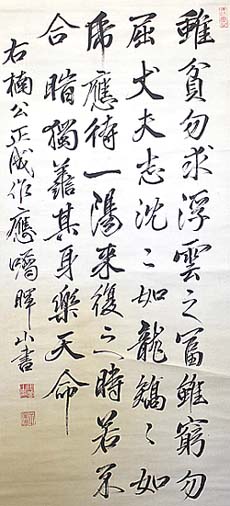 雖貧勿求浮雲之冨雖窮勿
屈丈夫志沈〻如龍〻如
乕應待一陽来復之時若不
合時獨善其身樂天命
右楠公正成作應嘱暉山書